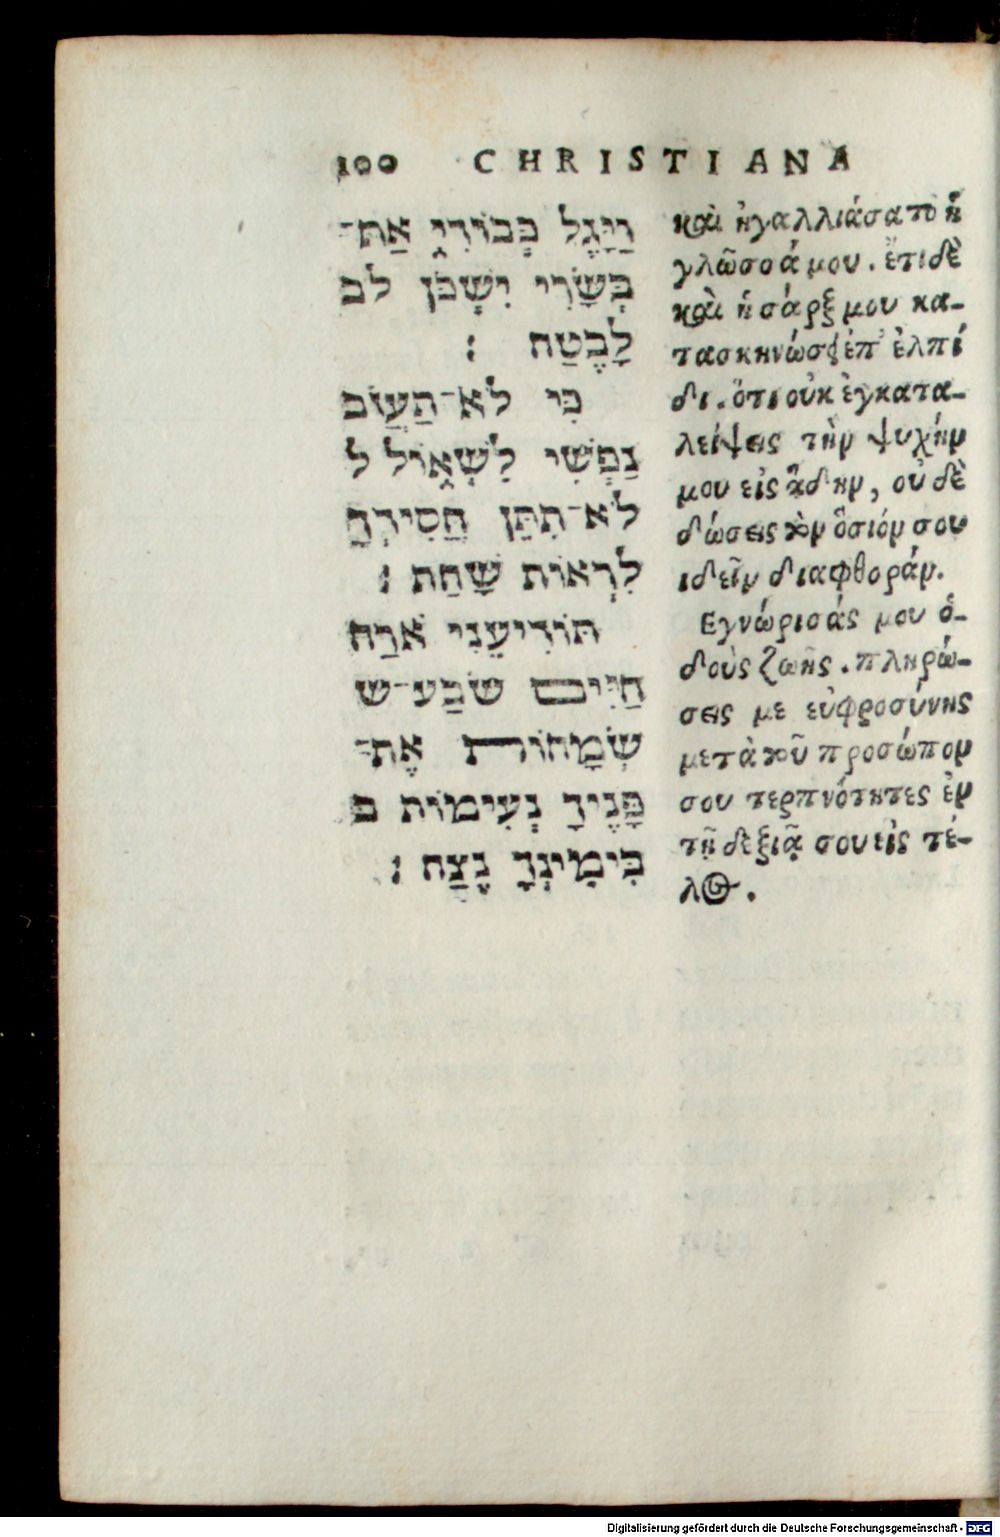 100 CHRISTIANA
וַיָּגֶל כְּבוֹדִי אַת־
בְּשָׂרִי יִשְׁכֹּן לב
לָבֶטַח :
כִּי לֹא־תַעֲזוֹב
נַפְשִׁי לִשְׁאוֹל ל
לֹא־תִתֵּן חֲסִידְךָ
לִרְאוֹת שָׁחַת :
תּוֹדִיעֵנִי אֹרַח
חַיִּים שֹׂבַע־ש
שְׂמָחוֹת אֶת־
פָּנֶיךָ נְעִימוֹת ב
בִּימִינְךָ נֶצַח :
καὶ ἠγαλλιάσατο ἡ
γλῶσσά μου. ἔτι δὲ
καὶ ἡ σάρξ μου κα-
τασκηνώσει ἐπ' ἐλπί
δι. ὅτι οὐκ ἐγκατα-
λείψεις τὴν ψυχήν
μου εἰς ᾅδην, οὐδὲ
δώσεις τὸν ὅσιόν σου
ἰδεῖν διαφθοράν.
Εγνώρισάς μου ὁ-
δοὺς ζωῆς. πληρώ-
σεις με εὐφροσύνης
μετὰ τοῦ προσώπου
σου τερπνότητες ἐν
τῇ δεξιᾷ σου εἰς τέ-
λος.
Digitalisierung gefördert durch die Deutsche Forschungsgemeinschaft - DFG